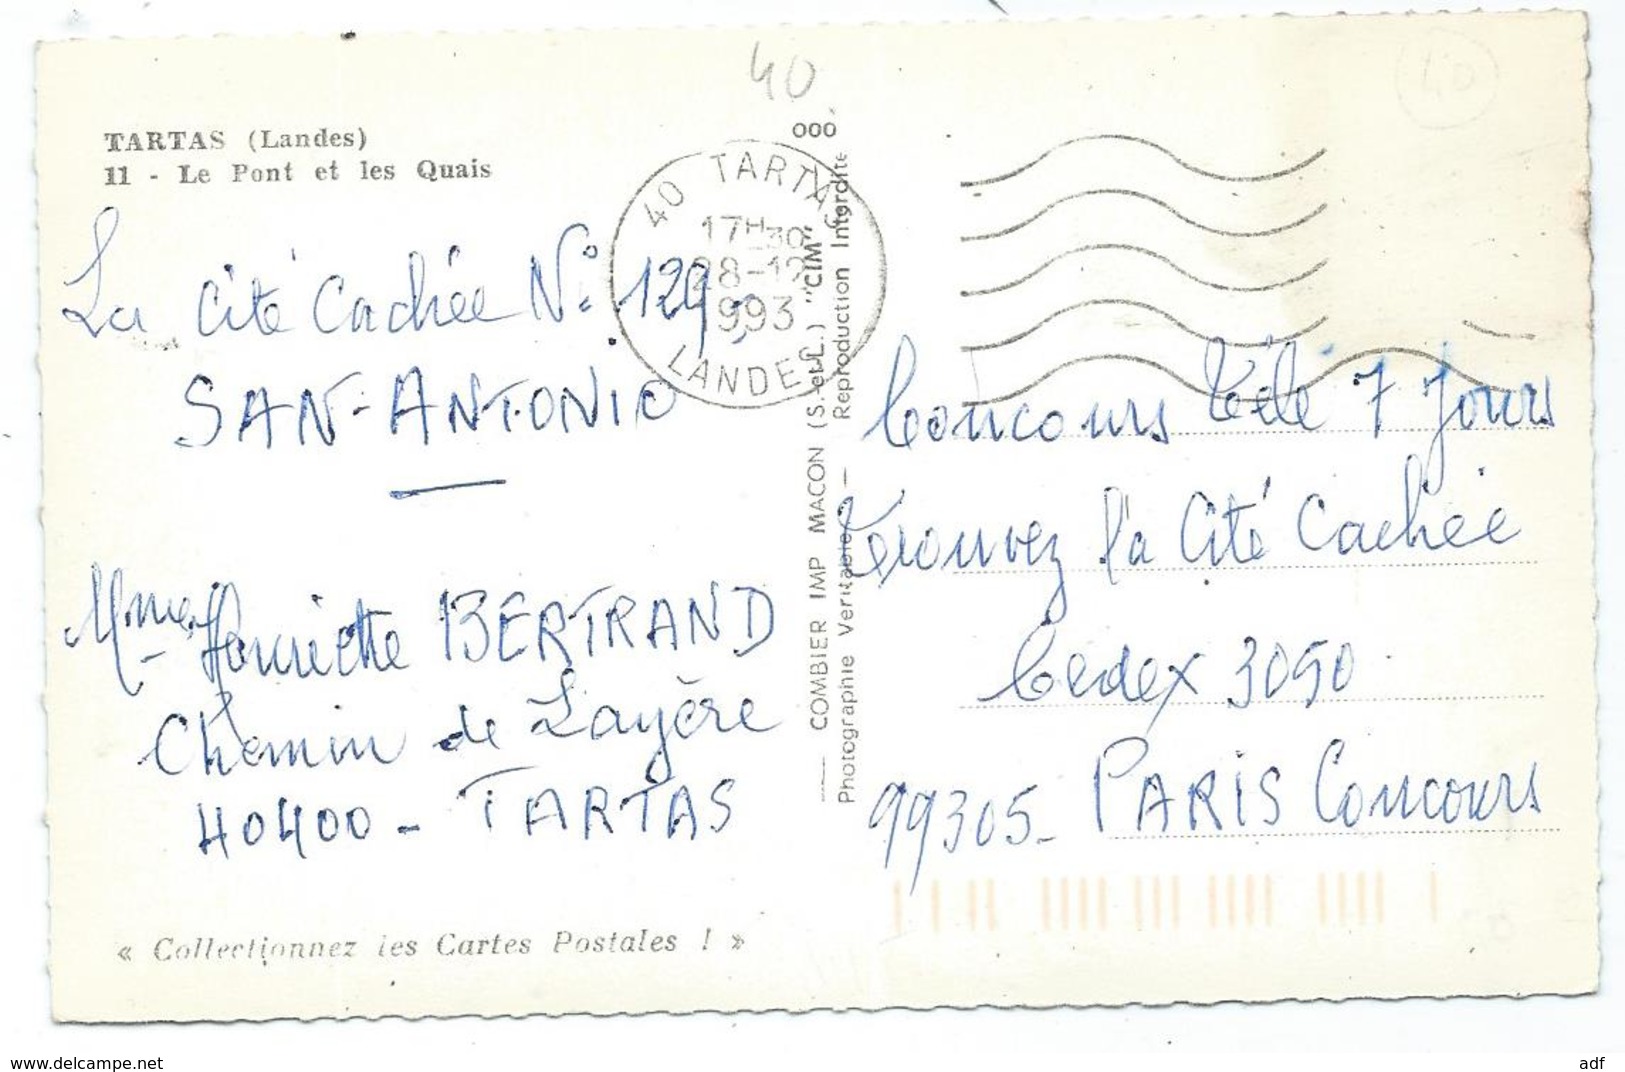 40
40
TARTAS (Landes)
11 - Le Pont et les Quais
40 TARTAS
17H30
28-12
1993
LANDES
La Cité Cachée N° 129
SAN-ANTONIO
Mme Henriette BERTRAND
Chemin de Layère
40400 - TARTAS
« Collectionnez les Cartes Postales ! »
000
COMBIER IMP MACON (S.-et-L.) "CIM"
Photographie Veritable — Reproduction Interdite
Concours Télé 7 Jours
Trouvez la Cité Cachée
Cedex 3050
99305 - PARIS Concours
www.delcampe.net
adf